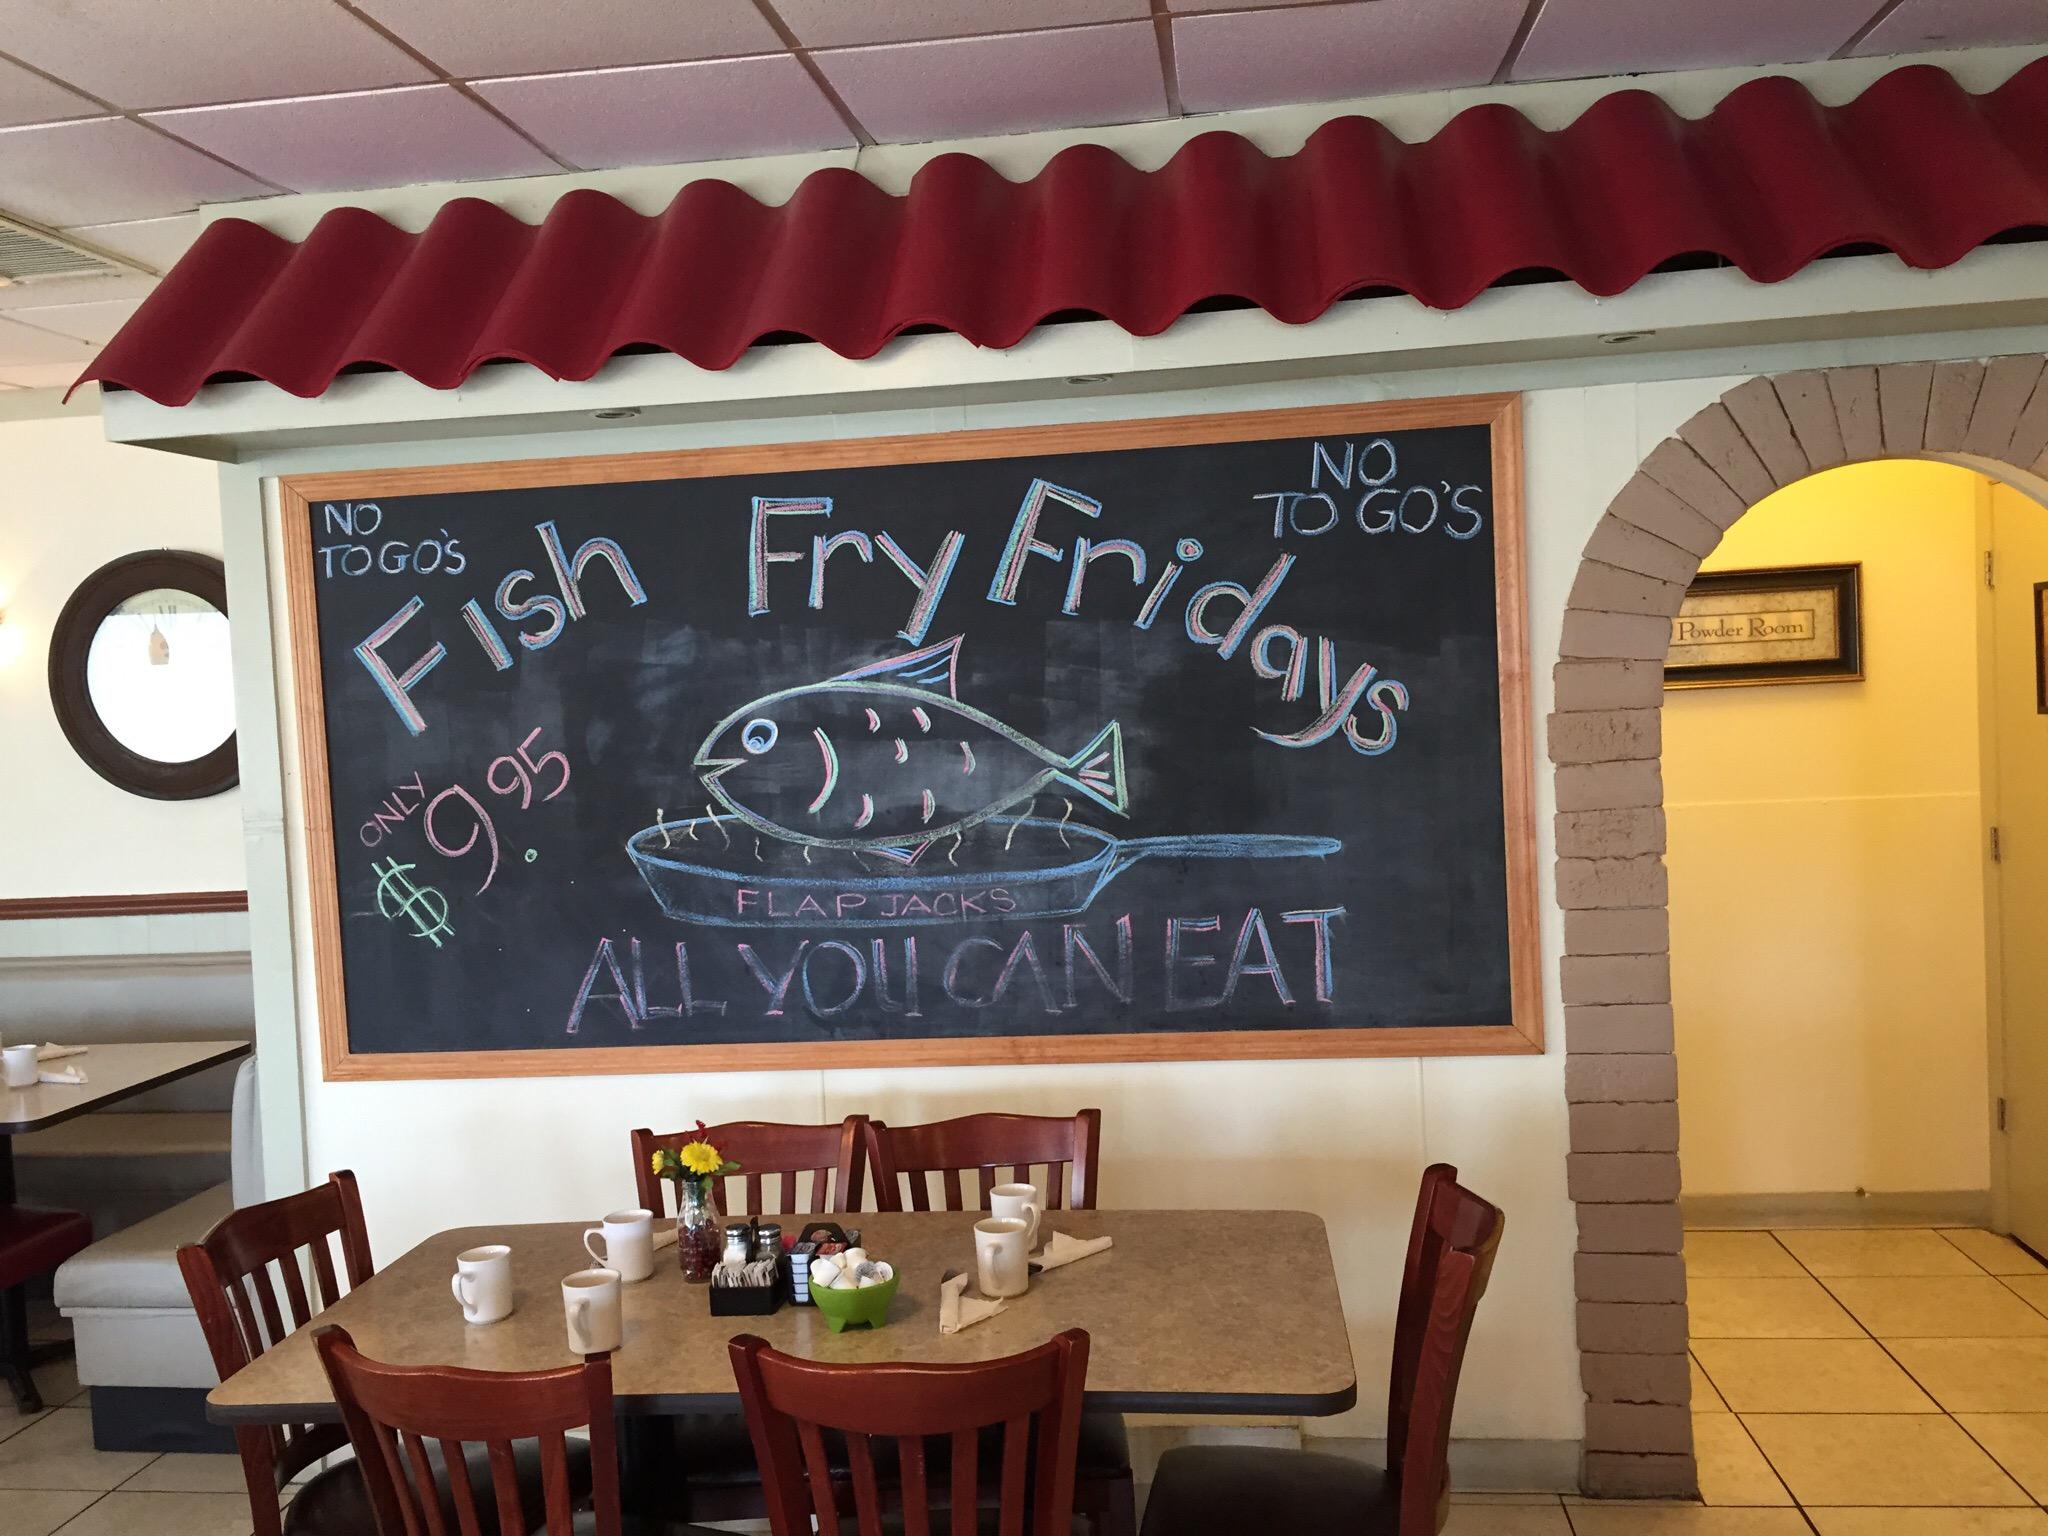 NO
TO GO'S
NO
TO GO'S
Fish Fry Fridays
ONLY
$9.95
FLAP JACKS
ALL YOU CAN EAT
Powder Room